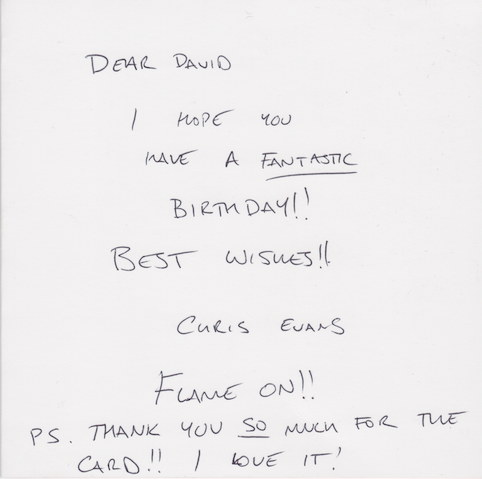 DEAR DAVID
I HOPE YOU
HAVE A FANTASTIC
BIRTHDAY!!
BEST WISHES!!
CHRIS EVANS
FLAME ON!!
PS. THANK YOU SO MUCH FOR THE
CARD!! I LOVE IT!